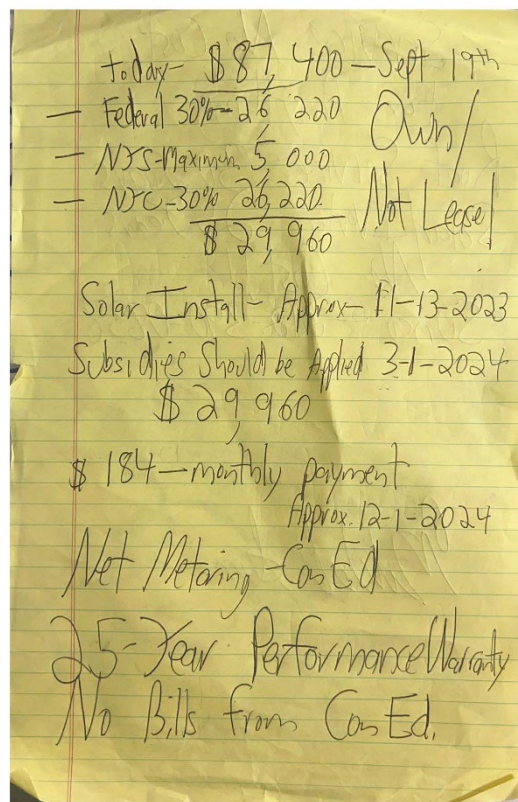 today- $87,400 - Sept 19th
- Federal 30% - 26,220
- NYS-Maximum 5,000
- NYC-30% 26,220
$29,960
Own/
Not Lease!
Solar Install- Approx- 11-13-2023
Subsidies Should be Applied 3-1-2024
$29,960
$184-monthly payment
Approx. 12-1-2024
Net Metoring-Con Ed
25-Year PerformanceWarranty
No Bills from Con Ed.